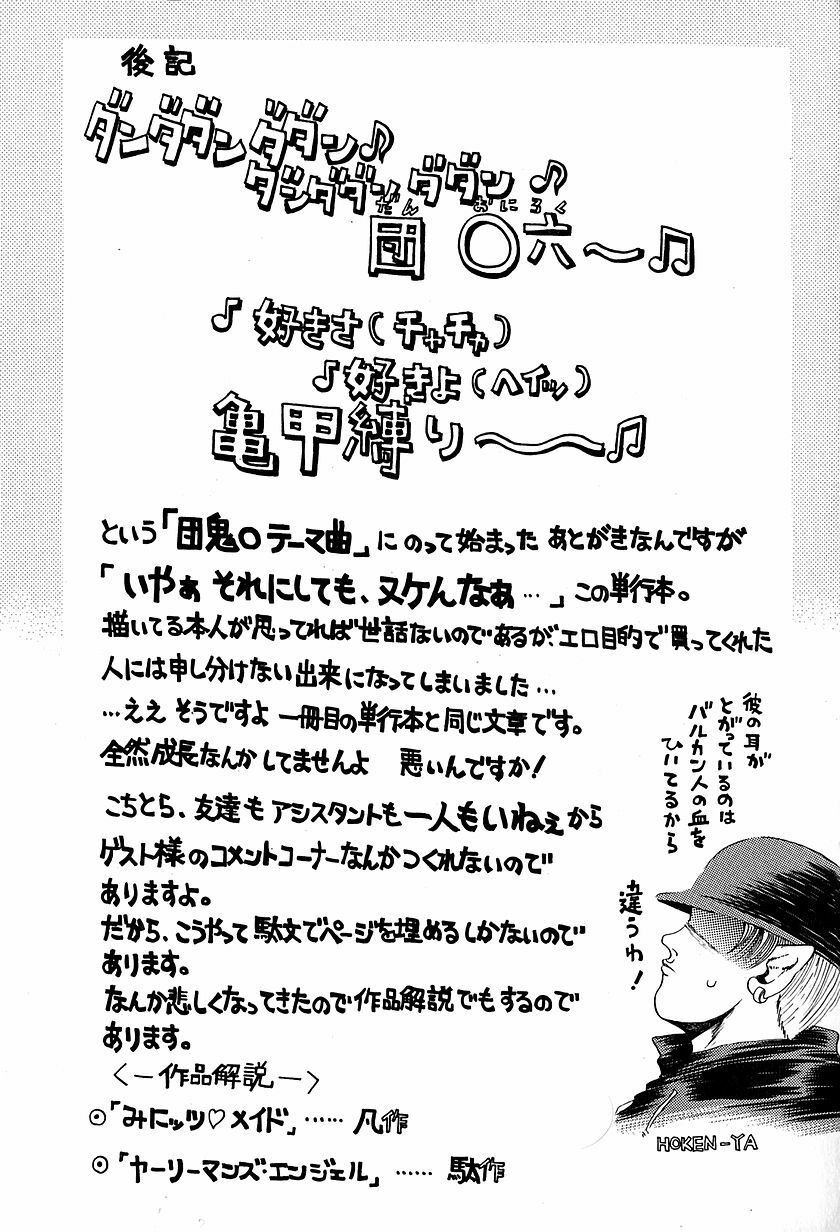 後記
ダンダダンダダン♪
ダンダダンダダン♪
団〇六〜♫
だん おにろく
♪好きさ(チャチャ)
♪好きよ(ヘイッ)
亀甲縛り〜〜♫
という「団鬼〇テーマ曲」にのって始まったあとがきなんですが
「いやぁそれにしても、ヌケんなぁ…」この単行本。
描いてる本人が思ってれば世話ないのであるが、エロ目的で買ってくれた
人には申し分けない出来になってしまいました…
…ええそうですよ一冊目の単行本と同じ文章です。
全然成長なんかしてませんよ 悪いんですか!
こちとら、友達もアシスタントも一人もいねぇから
ゲスト様のコメントコーナーなんかつくれないので
ありますよ。
だから、こうやって駄文でページを埋めるしかないので
あります。
なんか悲しくなってきたので作品解説でもするので
あります。
<―作品解説―>
◎「みにッツ♡メイド」……凡作
◎「ヤーリーマンズ・エンジェル」……駄作
彼の耳が
とがっているのは
バルカン人の血を
ひいてるから
違うわ!
HOKEN-YA